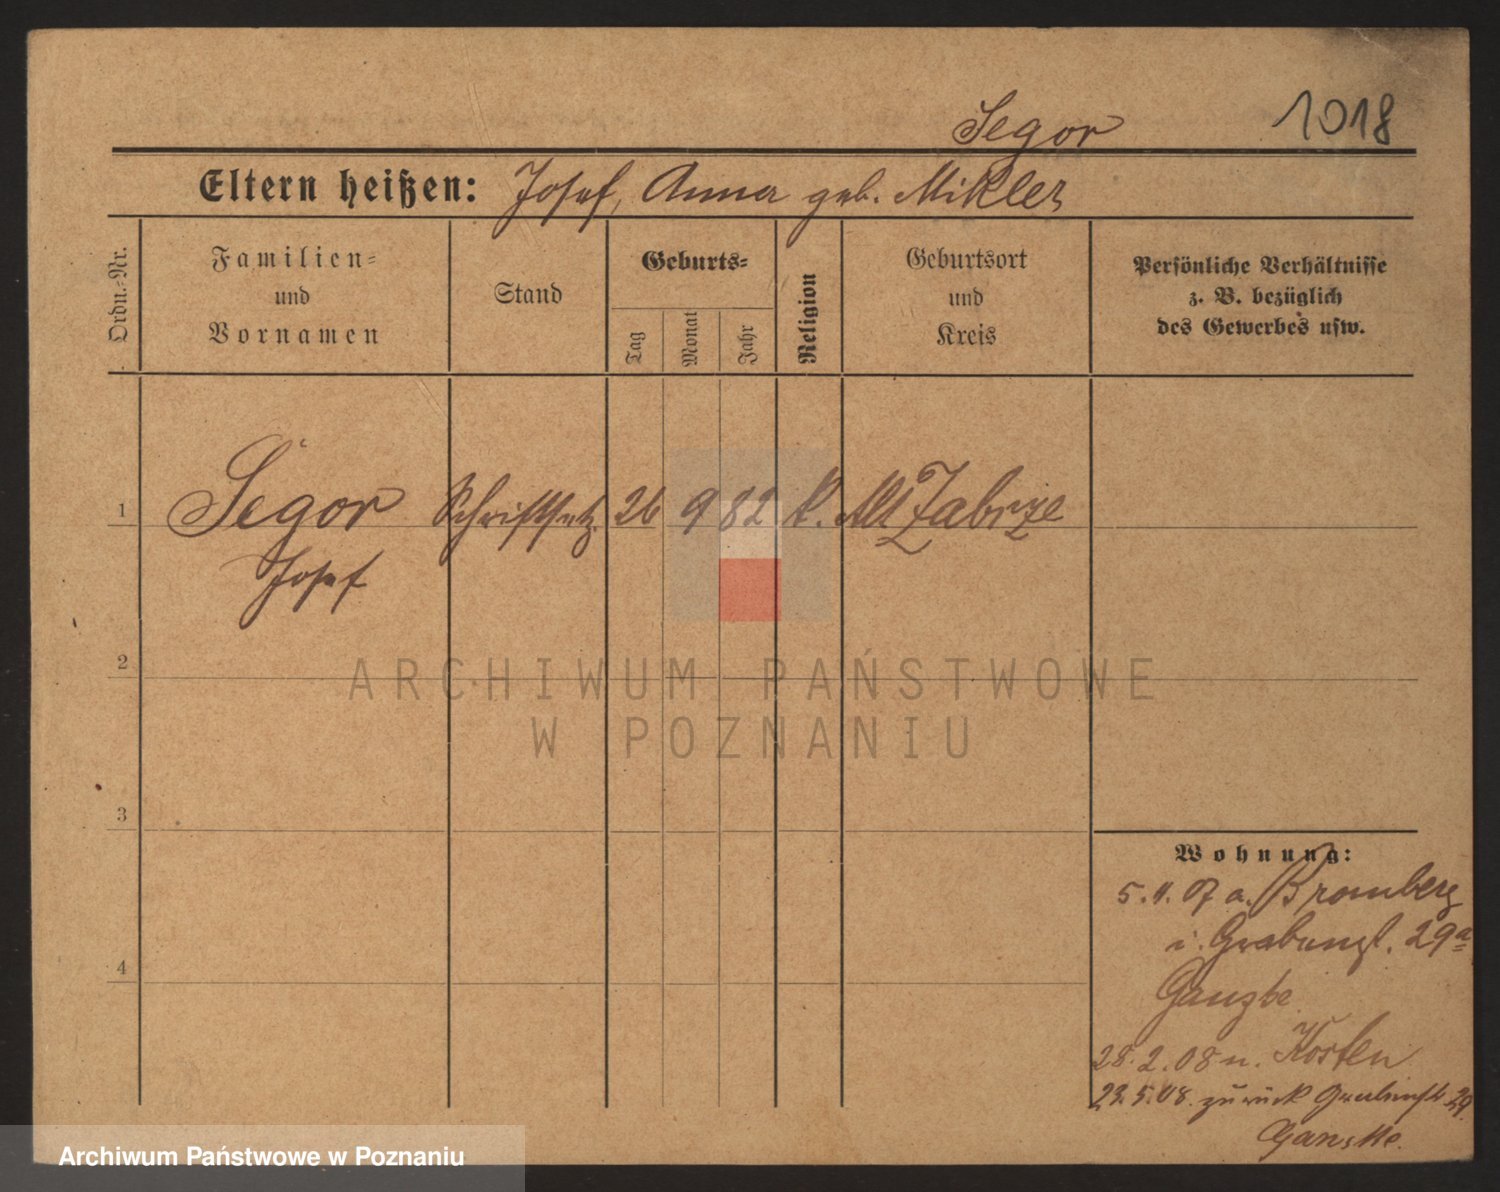 Segor 1018
Eltern heißen: Josef, Anna geb. Mikler
Ordn.-Nr.
Familien-
und
Vornamen
Stand
Geburts-
Tag
Monat
Jahr
Religion
Geburtsort
und
Kreis
Persönliche Verhältnisse
z. B. bezüglich
des Gewerbes usw.
1 Segor Schriftsetz. 26 9 82 k. Alt Zabrze
Josef
2
ARCHIWUM PAŃSTWOWE
W POZNANIU
3
Wohnung:
5. 11. 07 a. Bromberg
i. 29a
4
28. 2. 08 n. Kosten
23. 5. 08. zurück 29
Ganske.
Archiwum Państwowe w Poznaniu